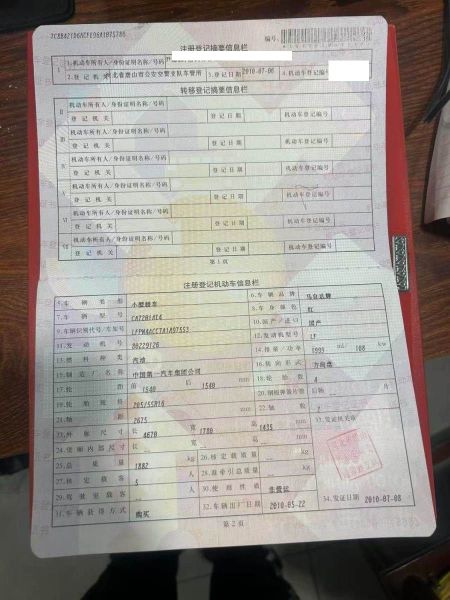 编号:
注册登记摘要信息栏
I 1.机动车所有人/身份证明名称/号码
2.登记机关 河北省唐山市公安交警支队车管所 3.登记日期 2010-07-08 4.机动车登记编号
转移登记摘要信息栏
II 机动车所有人/身份证明名称/号码
登记机关 登记日期 机动车登记编号
III 机动车所有人/身份证明名称/号码
登记机关 登记日期 机动车登记编号
机动车所有人/身份证明名称/号码
登记机关 登记日期 机动车登记编号
V 机动车所有人/身份证明名称/号码
登记机关 登记日期 机动车登记编号
VI 机动车所有人/身份证明名称/号码
登记机关 登记日期 机动车登记编号
VII 机动车所有人/身份证明名称/号码
登记机关 登记日期 机动车登记编号
第1页
注册登记机动车信息栏
5.车辆类型 小型轿车 6.车辆品牌 马自达牌
7.车辆型号 8.车身颜色 红
9.车辆识别代号/车架号 10.国产/进口 国产
11.发动机号 00229126 12.发动机型号 LF
13.燃料种类 汽油 14.排量/功率 1999 ml/ 108 kw
15.制造厂名称 中国第一汽车集团公司 16.转向形式 方向盘
17.轮距 前 1540 后 1540 mm 18.轮胎数 4
19.轮胎规格 205/55R16 20.钢板弹簧片数 后轴 片
21.轴距 2675 mm 22.轴数 2
23.外廓尺寸 长 4670 宽 1780 高 1435 mm 33.发证机关章
24.货厢内部尺寸 长 宽 高 mm
25.总质量 1882 kg 26.核定载质量 kg
27.核定载客 5 人 28.准牵引总质量 kg
29.驾驶室载客 人 30.使用性质 非营运
31.车辆获得方式 购买 32.车辆出厂日期 2010-05-22 34.发证日期 2010-07-08
第2页